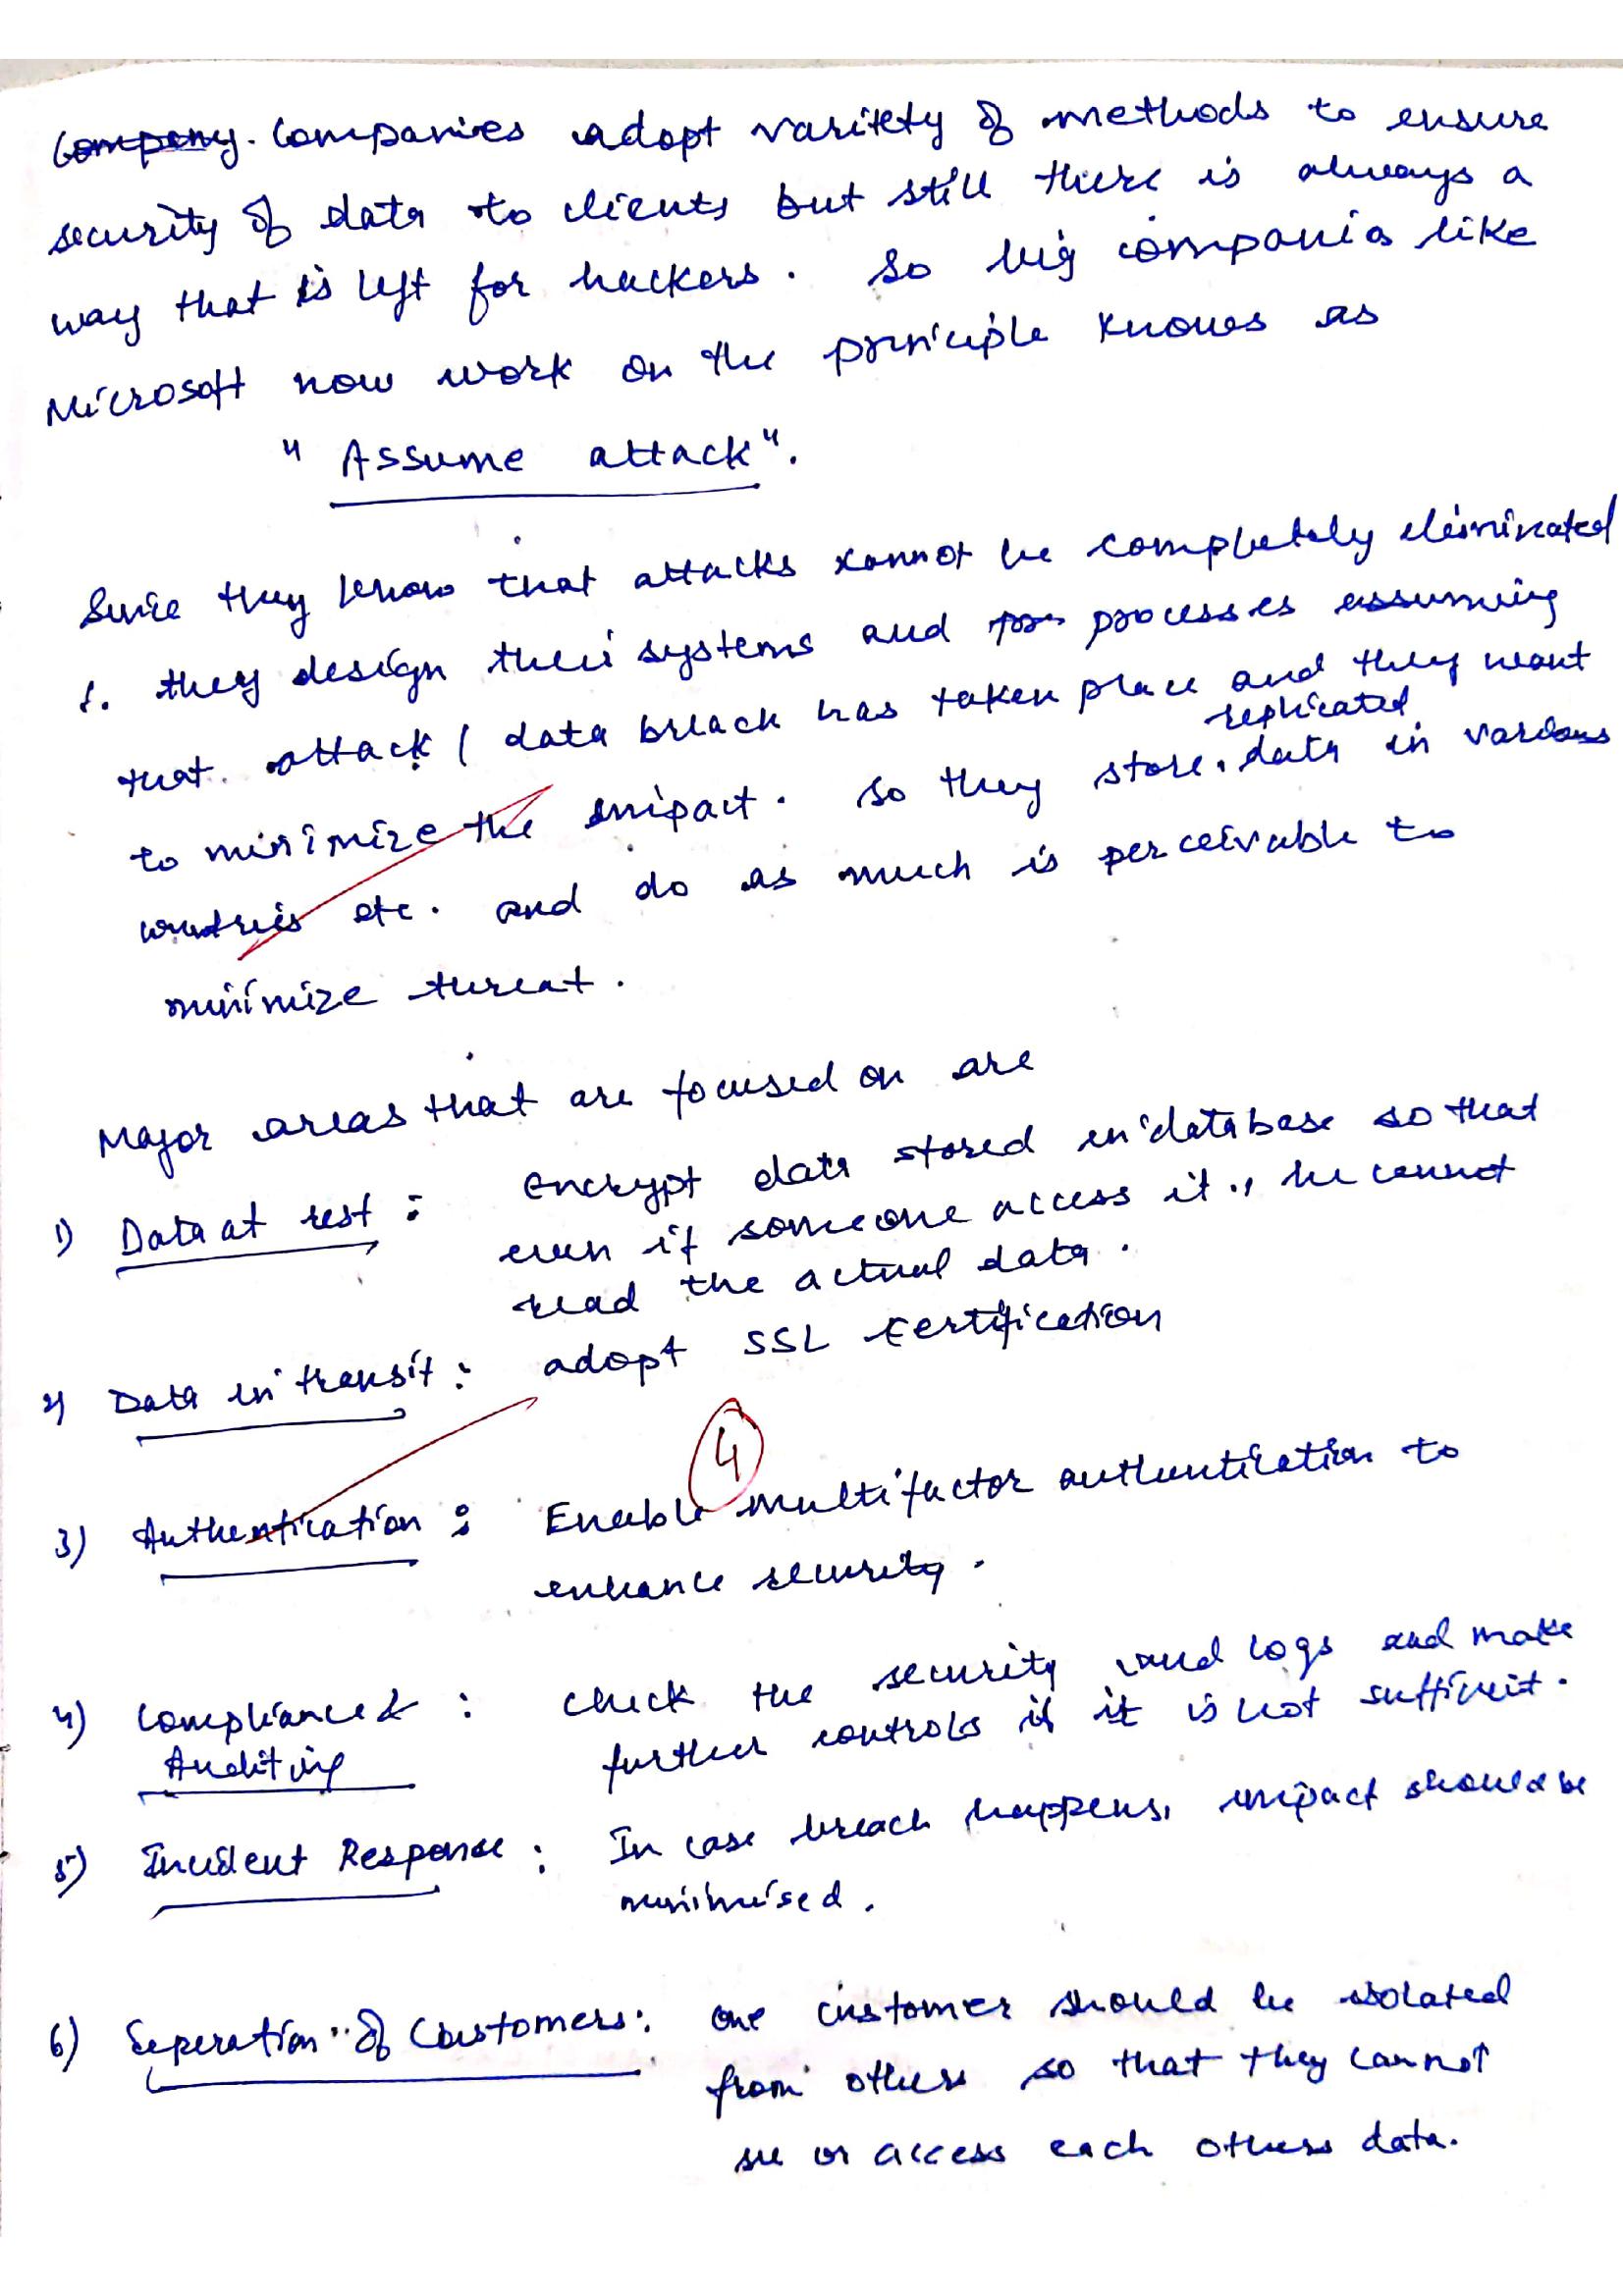 Company. Companies adopt varitety of methods to ensure
security of data to clients but still there is always a
way that is left for hackers. So big companies like
Microsoft now work on the principle knows as
"Assume attack".
Since they know that attacks cannot be completely eliminated
they design their systems and processes assuming
that attack / data breach has taken place and they want
to minimize the impact. So they store replicated data in various
countries etc. and do as much is perceivable to
minimize threat.
Major areas that are focused on are
1) Data at rest : encrypt data stored in database so that
even if someone access it, he cannot
read the actual data.
2) Data in transit : adopt SSL certification
4
3) Authentication : Enable multifactor authentication to
enhance security.
4) Compliance & : check the security and logs and make
Auditing further controls if it is not sufficient.
5) Incident Response : In case breach happens, impact should be
minimised.
6) Seperation of Customers : one customer should be isolated
from others so that they cannot
see or access each others data.